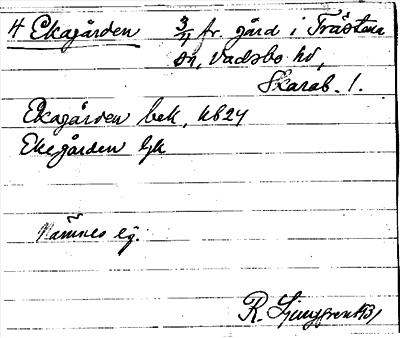 4 Ekagården 3/4 fr. gård i Trästena
sn, Vadsbo hd,
Skarab. l.
Ekagården bek, kb24
Ekegården Gjk
Namnes ej.
R. Ljunggren 1931